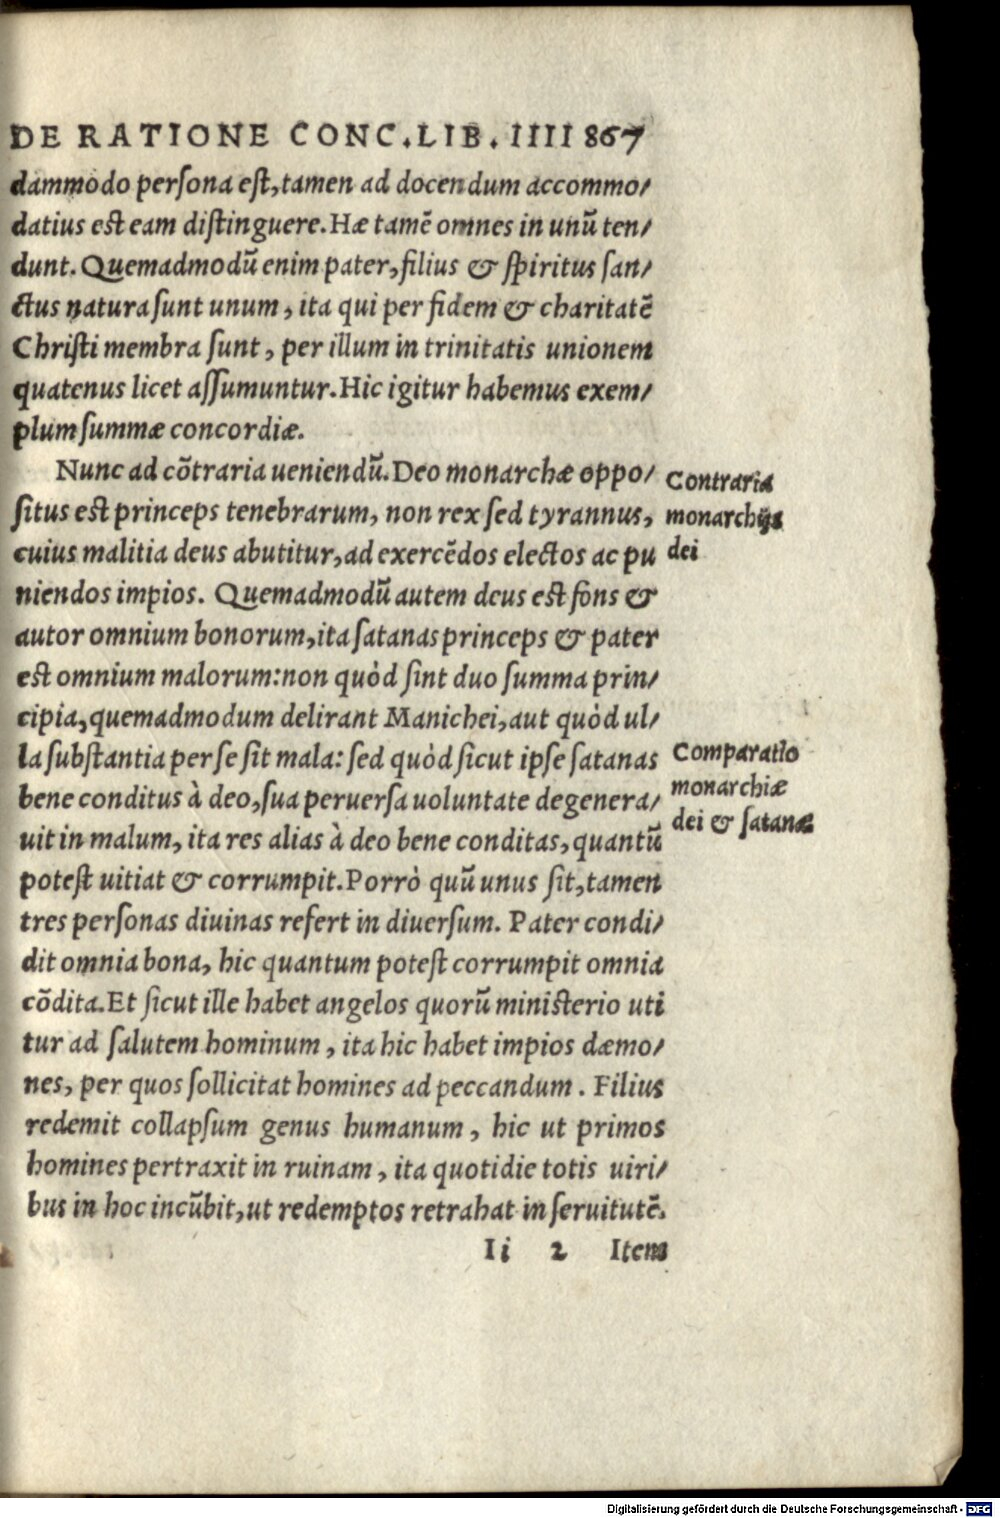 DE RATIONE CONC.LIB.IIII 867
dammodo persona est,tamen ad docendum accommo/
datius est eam distinguere.Hæ tamē omnes in unū ten/
dunt.Quemadmodū enim pater,filius & spiritus san/
ctus natura sunt unum, ita qui per fidem & charitatē
Christi membra sunt, per illum in trinitatis unionem
quatenus licet assumuntur.Hic igitur habemus exem/
plum summæ concordiæ.
Nunc ad cōtraria ueniendū.Deo monarchæ oppo/
situs est princeps tenebrarum, non rex sed tyrannus,
cuius malitia deus abutitur,ad exercēdos electos ac pu
niendos impios. Quemadmodū autem deus est fons &
autor omnium bonorum,ita satanas princeps & pater
est omnium malorum:non quòd sint duo summa prin/
cipia,quemadmodum delirant Manichei,aut quòd ul/
la substantia per se sit mala: sed quòd sicut ipse satanas
bene conditus à deo,sua peruersa uoluntate degenera/
uit in malum, ita res alias à deo bene conditas,quantū
potest uitiat & corrumpit.Porrò quū unus sit,tamen
tres personas diuinas refert in diuersum. Pater condi/
dit omnia bona, hic quantum potest corrumpit omnia
cōdita.Et sicut ille habet angelos quorū ministerio uti
tur ad salutem hominum, ita hic habet impios dæmo/
nes, per quos sollicitat homines ad peccandum. Filius
redemit collapsum genus humanum, hic ut primos
homines pertraxit in ruinam, ita quotidie totis uiri/
bus in hoc incūbit,ut redemptos retrahat in seruitutē.
Ii 2 Item
Contraria
monarchijs
dei
Comparatio
monarchiæ
dei & satanæ
Digitalisierung gefördert durch die Deutsche Forschungsgemeinschaft - DFG